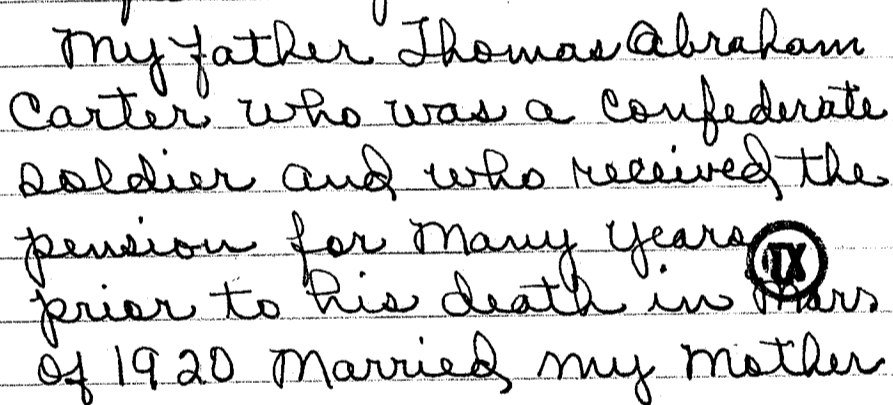 My father Thomas Abraham
Carter who was a Confederate
soldier and who received the
pension for many years
TX
prior to his death in Mars
of 1920 Married my Mother